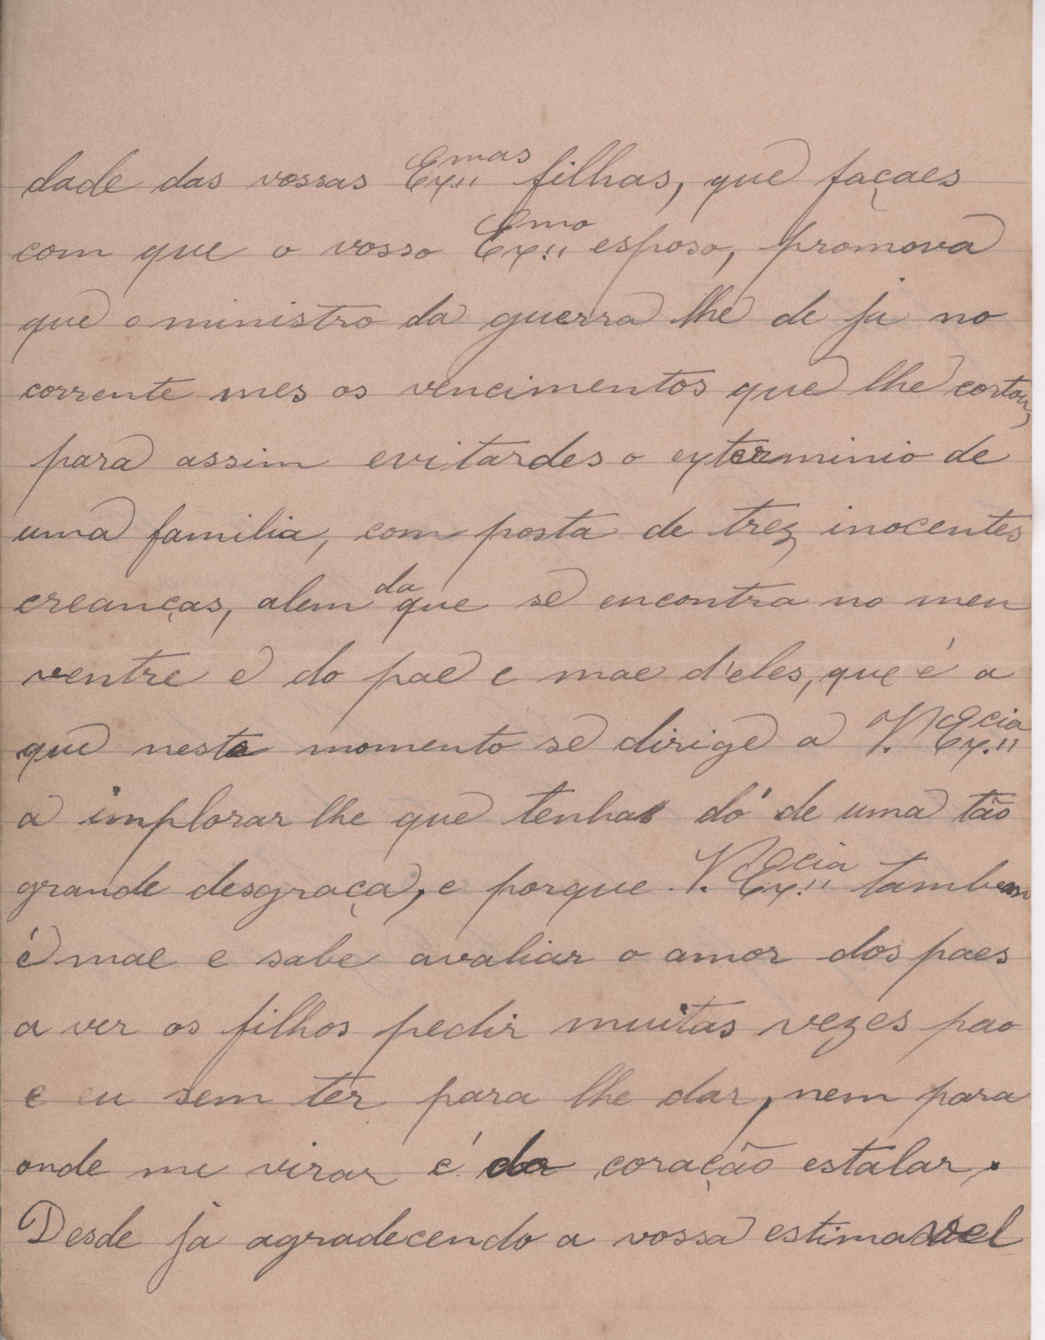 dade das vossas Ex.mas filhas, que façaes
com que o vosso Ex.mo esposo, promova
que o ministro da guerra lhe de já no
corrente mes os vencimentos que lhe cortou,
para assim evitardes o exterminio de
uma familia, com posta de trez inocentes
creanças, alem da que se encontra no meu
ventre e do pae e mae d'eles, que é a
que neste momento se dirige a V. Ex.cia
a implorar lhe que tenha dó de uma tão
grande desgraça, e porque V. Ex.cia tambem
é mae e sabe avaliar o amor dos paes
a ver os filhos pedir muitas vezes pao
e eu sem ter para lhe dar, nem para
onde me virar é do coração estalar.
Desde já agradecendo a vossa estimavel